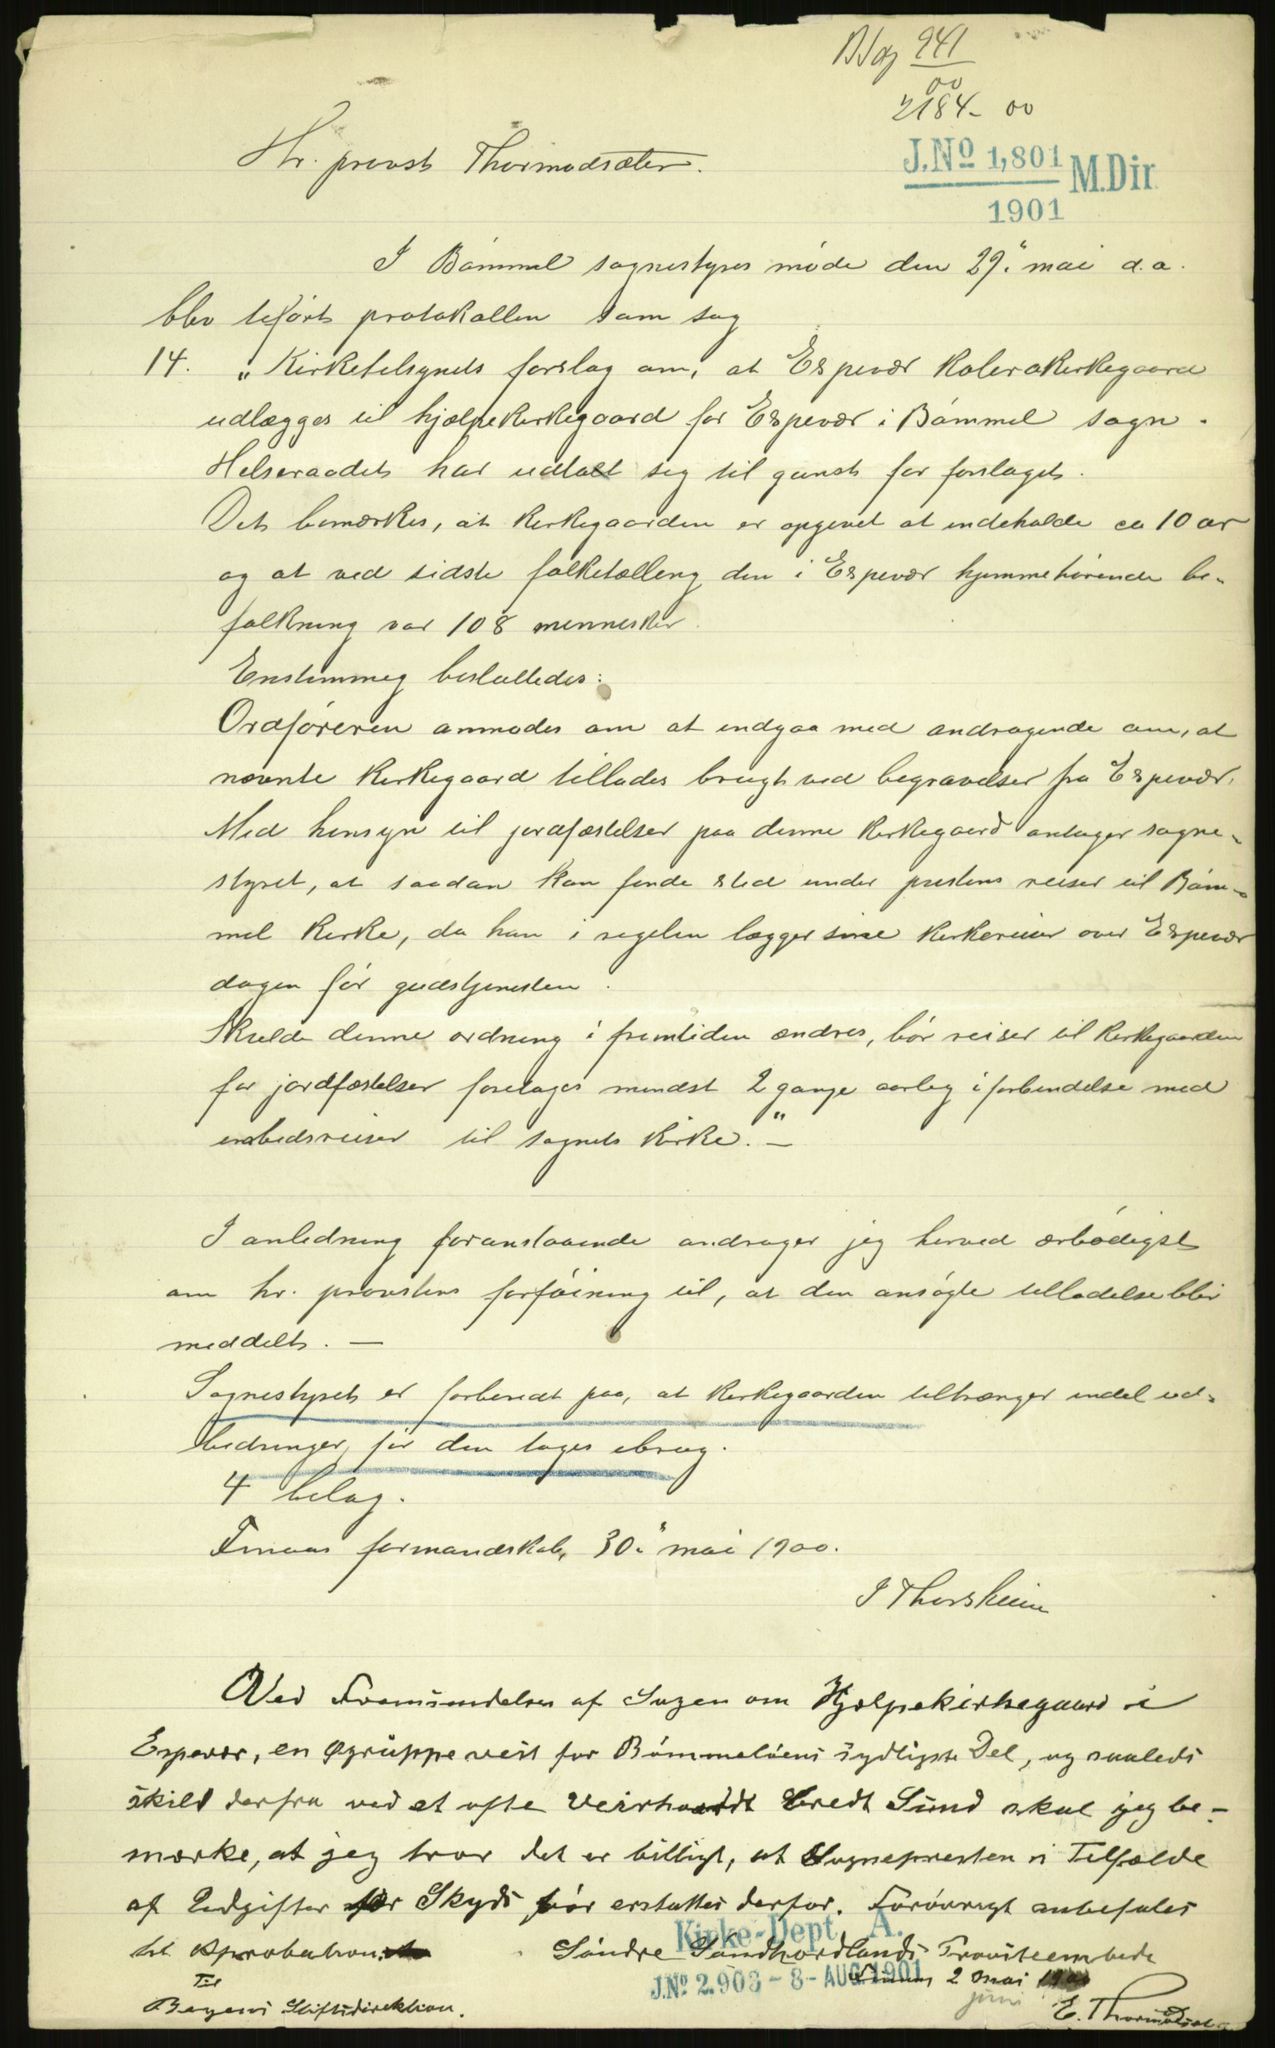 BJ og 941
00
2184- 00
Hr. provst Thormodsæter.
J.No 1,801 M.Dir
1901
I Bømmel sognestyres møde den 29. mai d.a.
blev tilført protokollen som sag
14. „Kirketilsynets forslag om, at Espevær kolerakirkegaard
udlægges til hjælpekirkegaard for Espevær i Bømmel sogn.
Helseraadet har udtalt sig til gunst for forslaget.
Det bemærkes, at kirkegaarden er opgivet at indeholde ca 10 ar
og at ved sidste folketælling den i Espevær hjemmehørende be-
folkning var 108 mennesker.
Enstemmig besluttedes:
Ordføreren anmodes om at indgaa med andragende om, at
nævnte kirkegaard tillades brugt ved begravelser fra Espevær.
Med hensyn til jordfæstelser paa denne kirkegaard antager sogne-
styret, at saadan kan finde sted under prestens reiser til Bøm-
mel kirke, da han i regelen lægger sine kirkereiser over Espevær
dagen før gudstjenesten.
Skulde denne ordning i fremtiden ændres, bør reiser til kirkegaarden
for jordfæstelser foretages mindst 2 gange aarlig i forbindelse med
embedsreiser til sognets kirke.“ —
I anledning foranstaaende andrager jeg herved ærbødigst
om hr. provstens forføining til, at den ansøgte tilladelse blir
meddelt. —
Sognestyret er forberedt paa, at kirkegaarden tiltrænger endel ud-
bedringer, før den tages ibrug.
4 belag.
Finaas formandskab, 30. mai 1900.
J Thorsheim
Ved Fremsendelse af Sagen om Hjælpekirkegaard i
Espevær, en Øgruppe vest for Bømmeløens sydligste Del, og saaledes
skilt derfra ved et ofte veirhaardt bredt Sund skal jeg be-
mærke, at jeg tror det er billigt, at Sognepresten i Tilfælde
af Udgifter for Skyds bør erstattes derfor. Forøvrigt anbefales
til Approbation.
Søndre Søndhordlands Provsteembede
Kirke-Dept. A.
J.No 2.903 - 8- AUG. 1901
Finnaas 2 mai 1900
juni
Til
Bergens Stiftsdirektion.
E. Thormodsæter